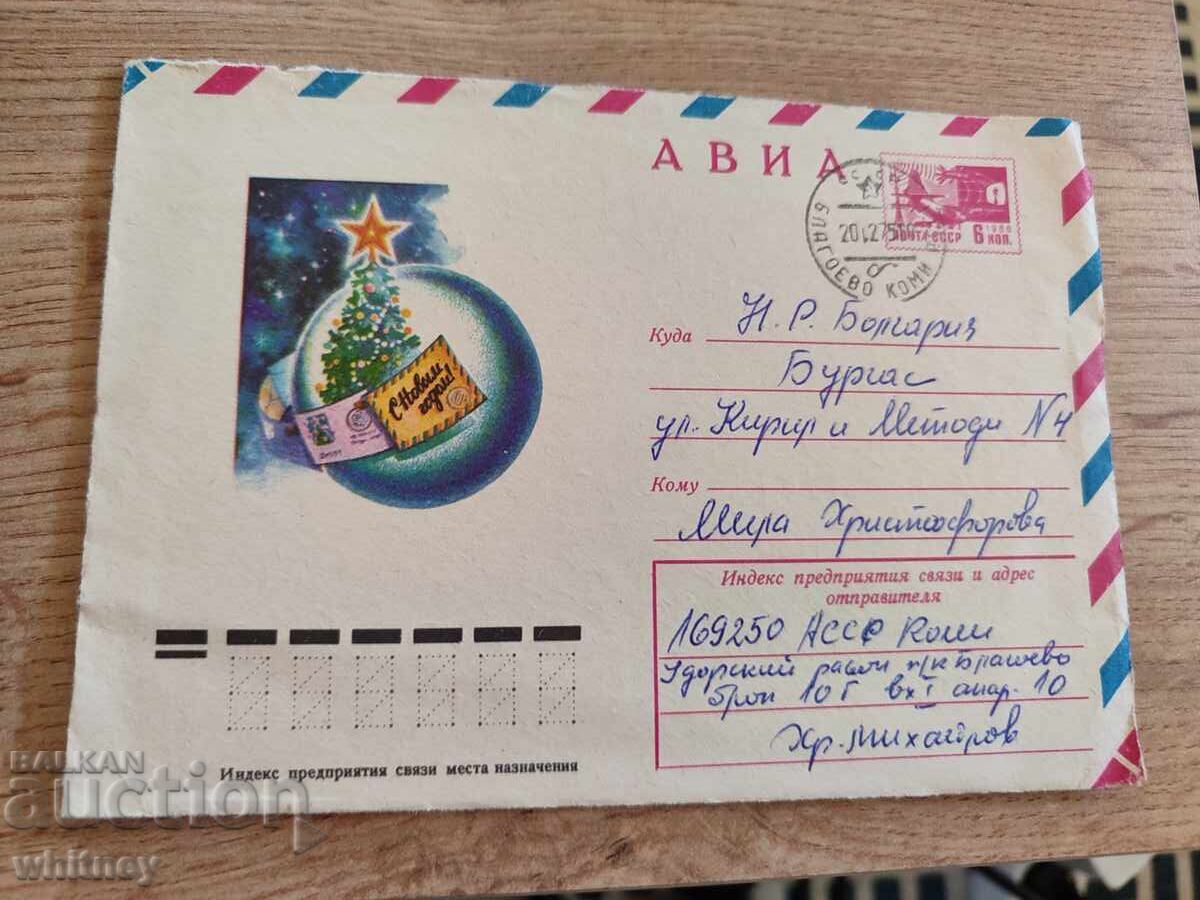 АВИА
БЛАГОЕВО КОМИ
ПОЧТА СССР 6 КОП.
1966
С Новым
годом!
Куда Н. Р. Болгария
Бургас
ул. Кирил и Методи N 4
Кому
Мира Христофорова
Индекс предприятия связи и адрес
отправителя
169250 АССР Коми
Удорский район п/к Благоево
блок 10 Г вх I апар. 10
Хр. Михайров
Индекс предприятия связи места назначения
BALKAN
auction
whitney